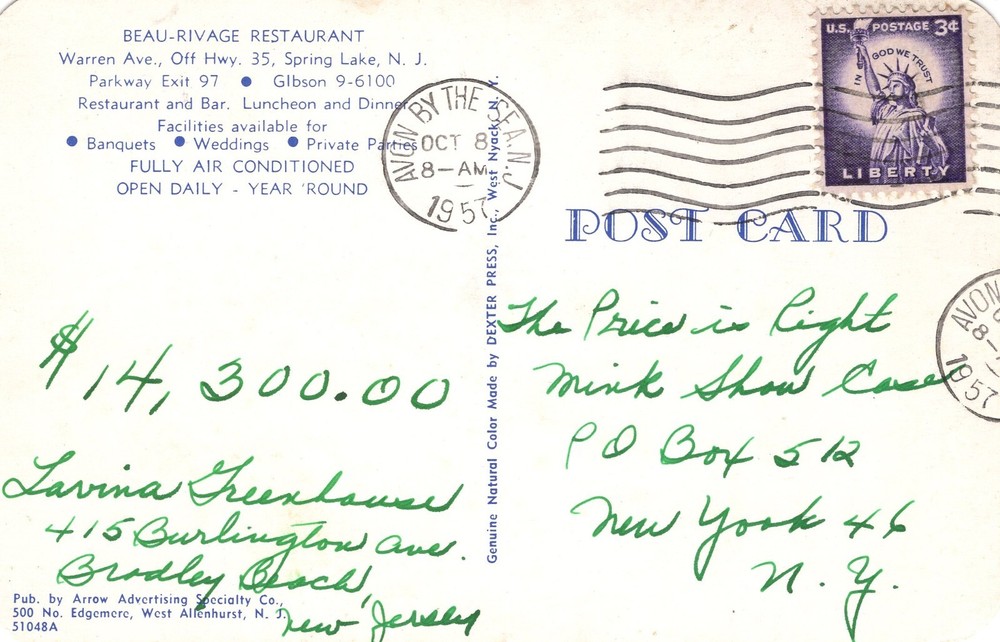 BEAU-RIVAGE RESTAURANT
Warren Ave., Off Hwy. 35, Spring Lake, N. J.
Parkway Exit 97 ● GIbson 9-6100
Restaurant and Bar. Luncheon and Dinner
Facilities available for
● Banquets ● Weddings ● Private Parties
FULLY AIR CONDITIONED
OPEN DAILY - YEAR 'ROUND
AVON BY THE SEA. N.J.
OCT 8
8-AM
1957
U.S. POSTAGE 3¢
IN GOD WE TRUST
LIBERTY
POST CARD
Genuine Natural Color Made by DEXTER PRESS, Inc., West Nyack, N. Y.
$14,300.00
Lavina Greenhouse
415 Burlington Ave.
Bradley Beach,
New Jersey
The Price is Right
Mink Show Case
P O Box 512
New York 46
N. Y.
AVON
8-
1957
Pub. by Arrow Advertising Specialty Co.,
500 No. Edgemere, West Allenhurst, N. J.
51048A